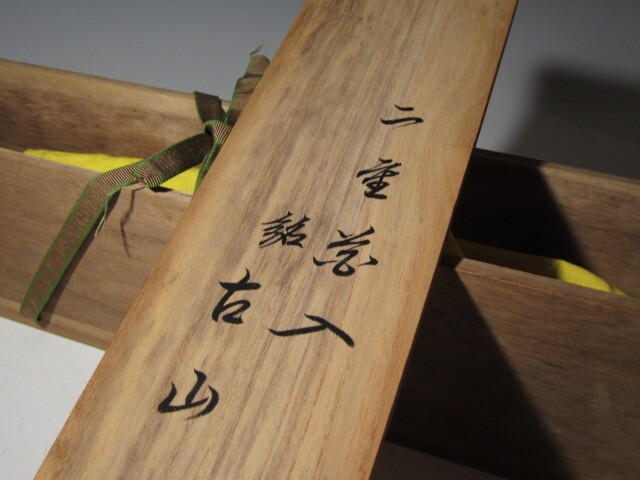 二重花入
銘 古山